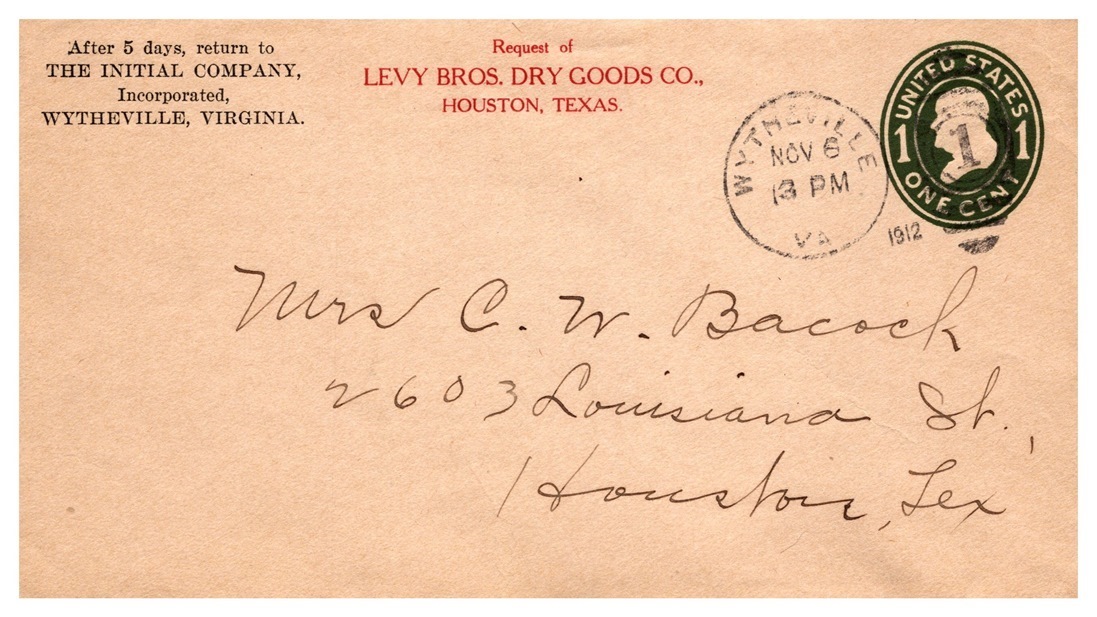 After 5 days, return to
THE INITIAL COMPANY,
Incorporated,
WYTHEVILLE, VIRGINIA.
Request of
LEVY BROS. DRY GOODS CO.,
HOUSTON, TEXAS.
WYTHEVILLE
NOV 6
PM
VA
1912
UNITED STATES
1 1 1
ONE CENT
Mrs C. W. Bacock
2603 Louisiana St.,
Houston, Tex